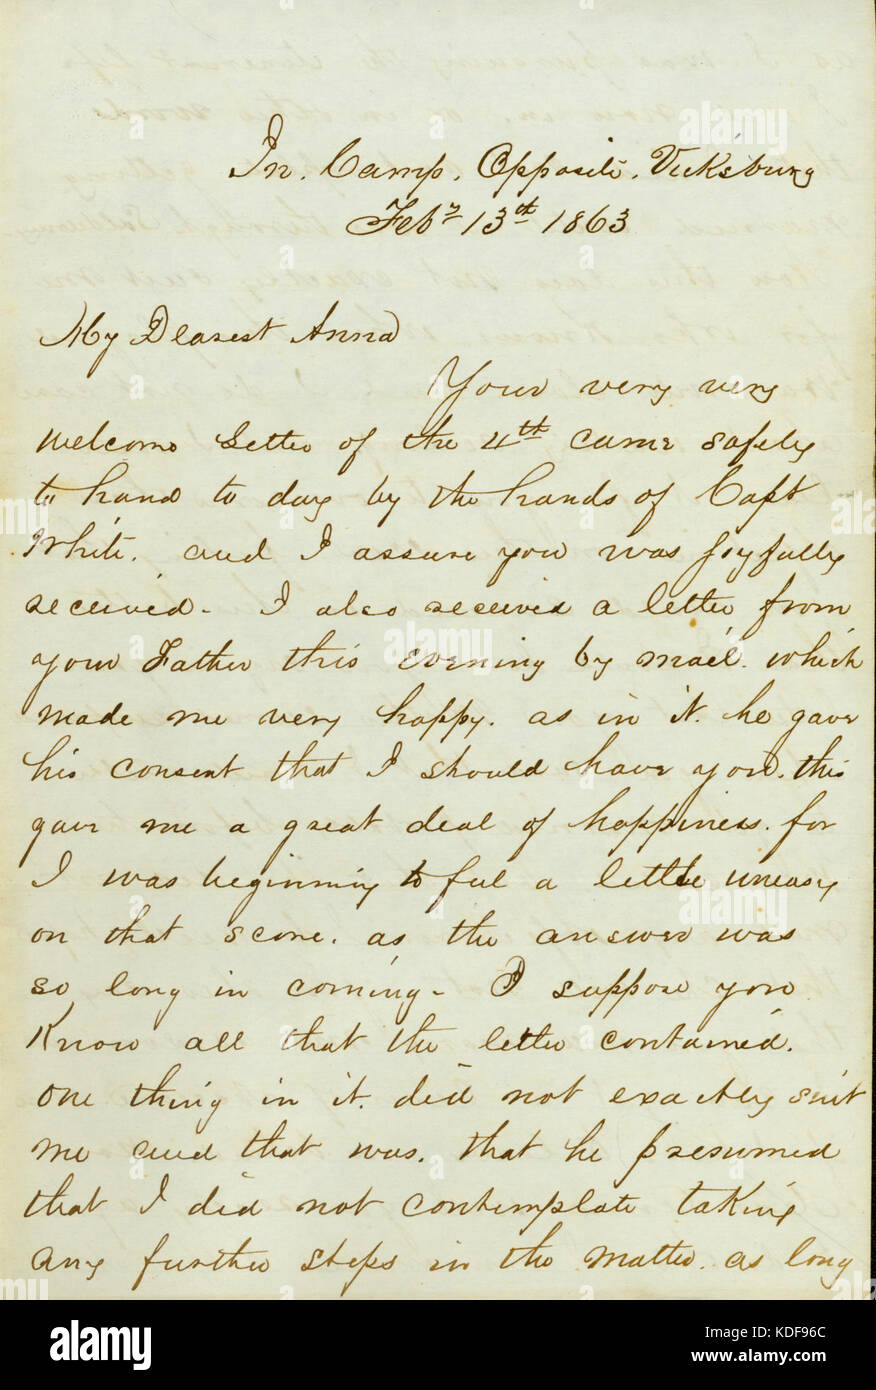 In. Camp. Opposite. Vicksburg
Feby 13th 1863
My Dearest Anna
Your very very
welcome letter of the 4th came safely
to hand to day by the hands of Capt
White. and I assure you was joyfully
received - I also received a letter from
your Father this evening by mail. which
made me very happy. as in it. he gave
his consent that I should have you. this
gave me a great deal of happiness. for
I was beginning to feel a little uneasy
on that score. as the answer was
so long in coming - I suppose you
Know all that the letter contained.
one thing in it. did not exactly suit
me and that was. that he presumed
that I did not contemplate taking
any further steps in the matter. as long
alamy
Image ID: KDF96C
www.alamy.com